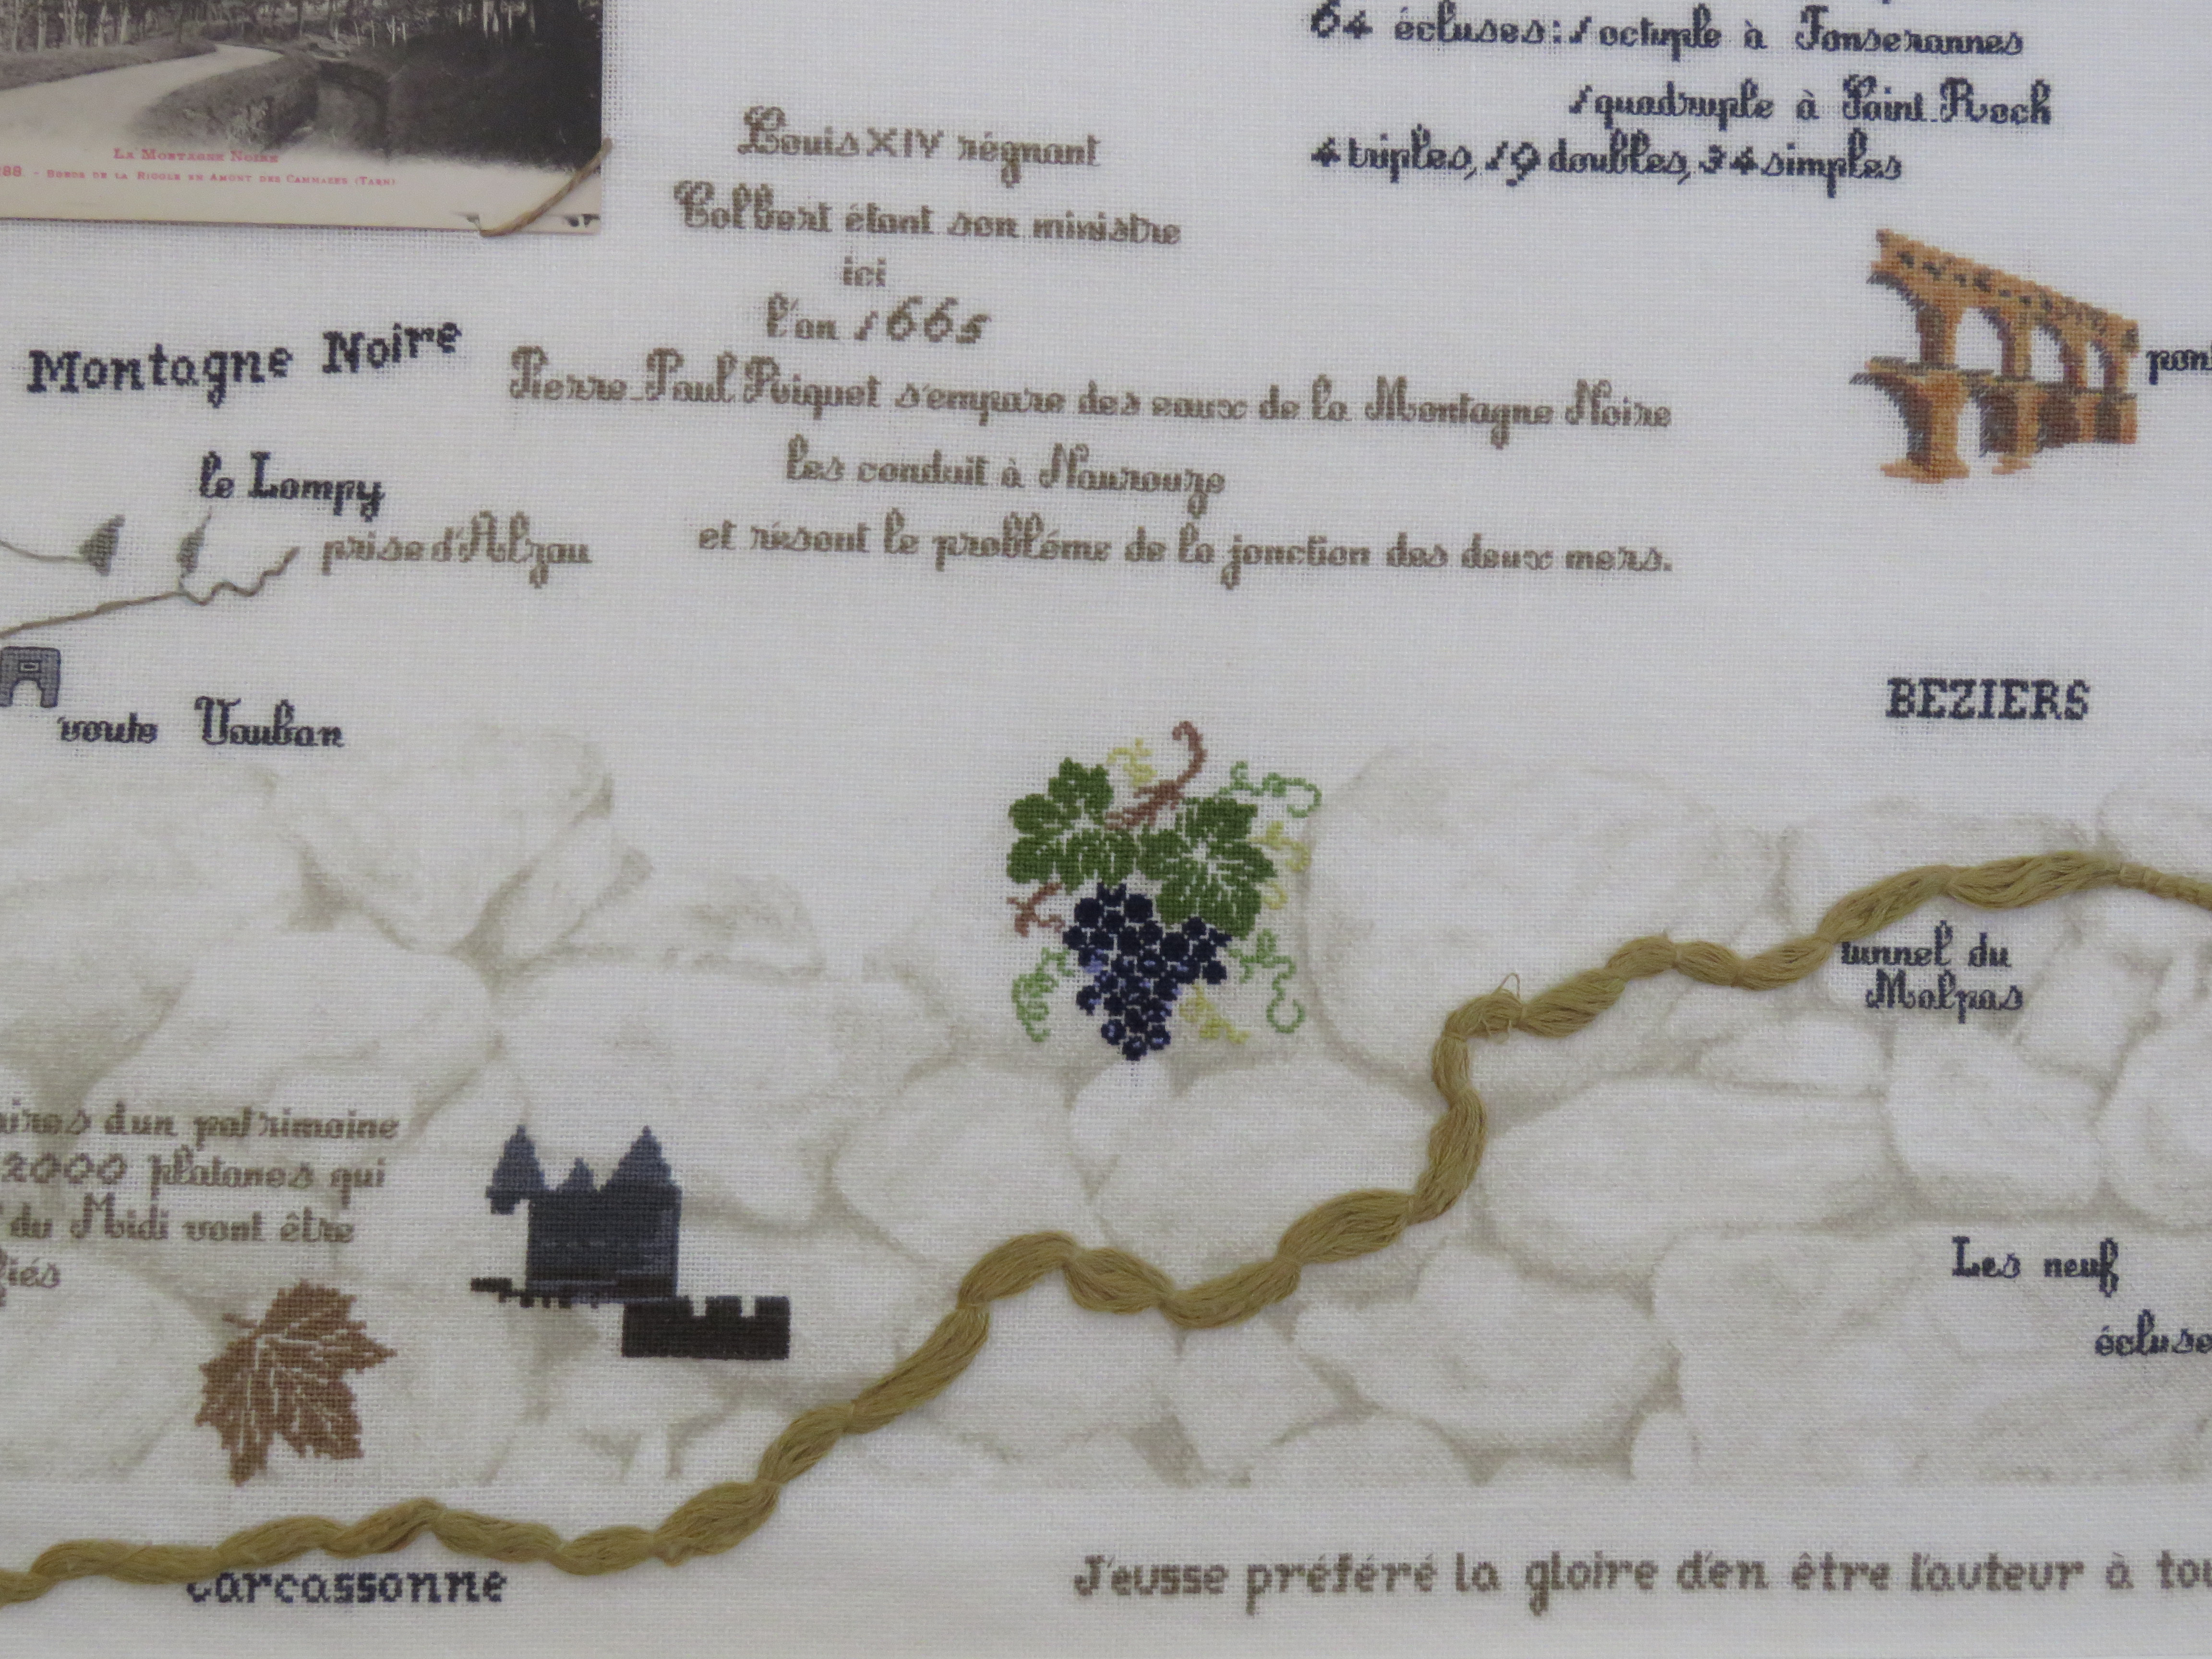 64 écluses: 1 octuple à Fonserannes
1 quadruple à Saint-Roch
4 triples, 19 doubles, 34 simples
LA MONTAGNE NOIRE
288. - BORDS DE LA RIGOLE EN AMONT DES CAMMAZES (TARN)
Louis XIV régnant
Colbert étant son ministre
ici
l'an 1665
Pierre-Paul Riquet s'empare des eaux de la Montagne Noire
les conduit à Naurouze
et résout le probléme de la jonction des deux mers.
Montagne Noire
pont
le Lampy
prise d'Alzau
voute Vauban
BEZIERS
tunnel du
Malpas
aires d'un patrimoine
2000 platanes qui
du Midi vont être
fiés
Les neuf
écluse
Carcassonne
J'eusse préféré la gloire d'en être l'auteur à tou